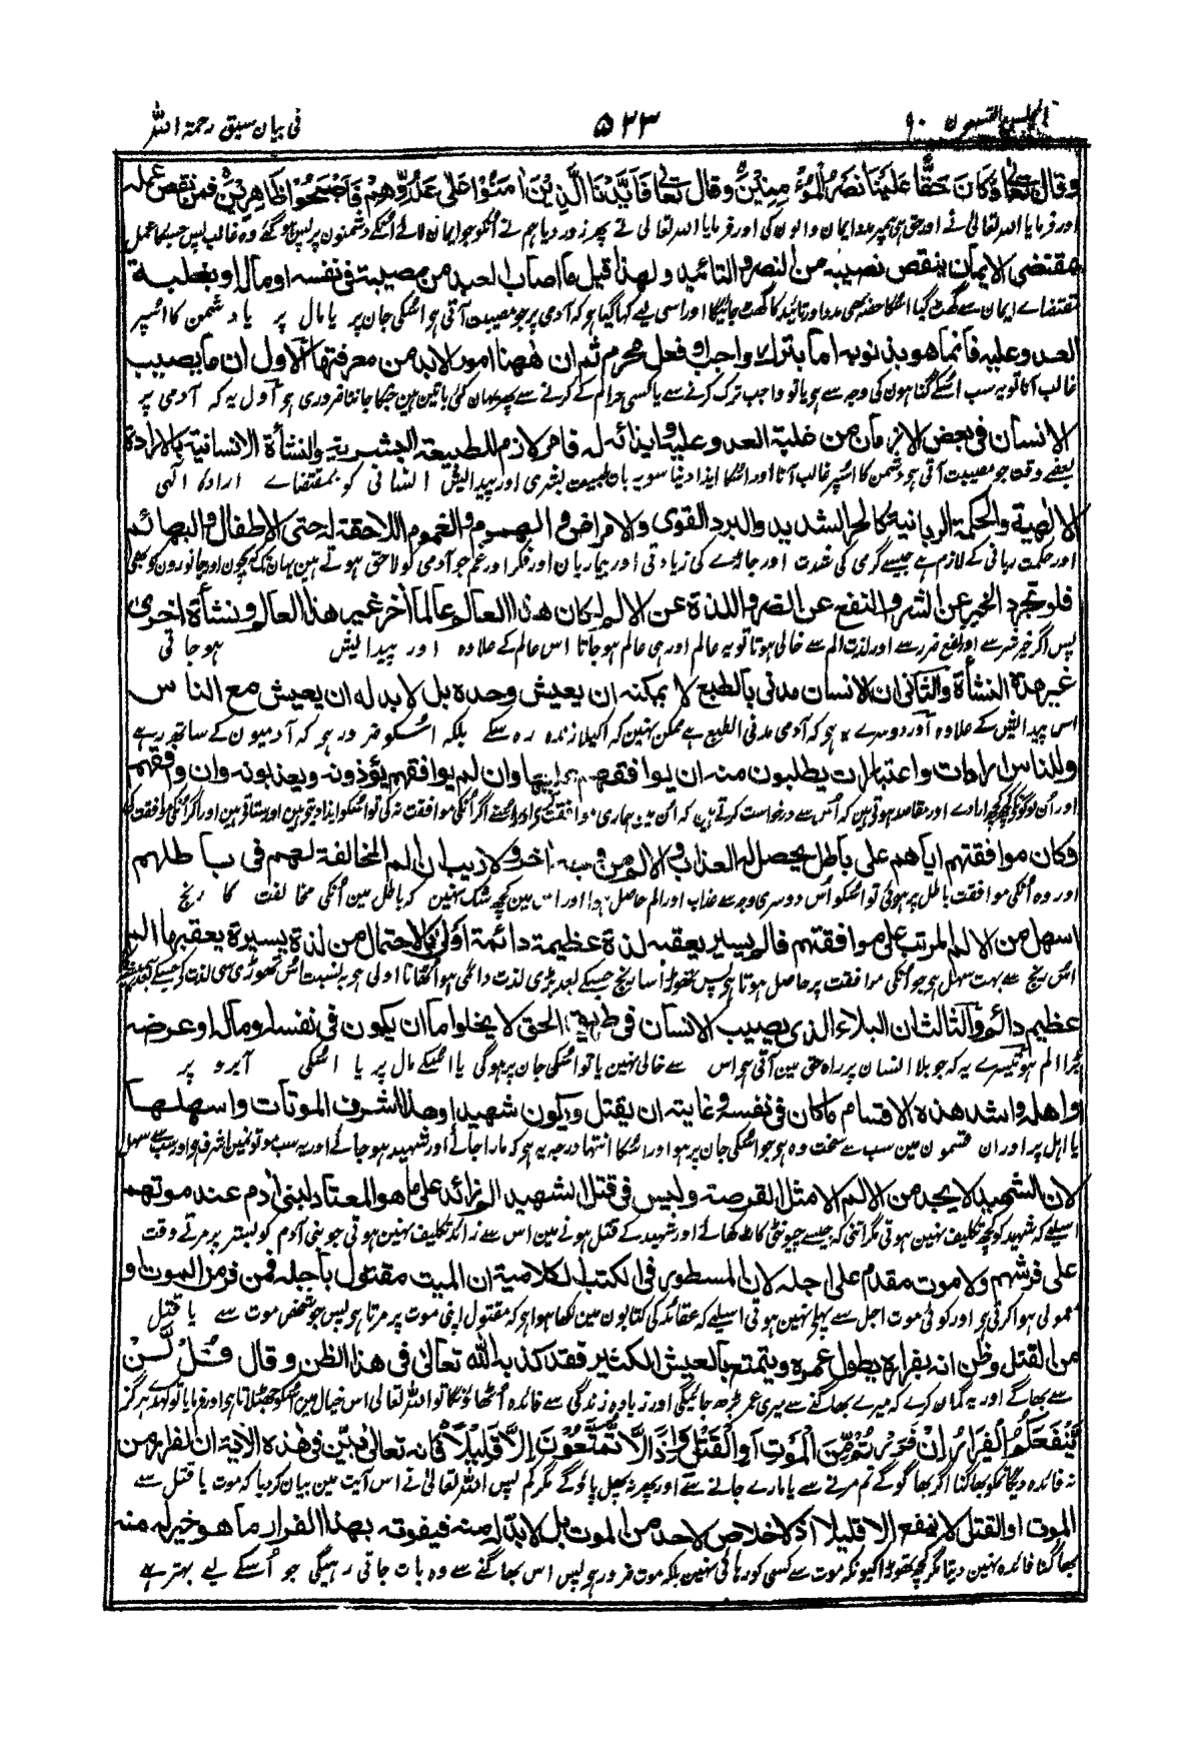 المجلس التسعون ۹۰ ۵۲۳ فی بیان سبق رحمة الله
وقال تعالى وَكَانَ حَقًّا عَلَيْنَا نَصْرُ الْمُؤْمِنِيْنَ وقال تعالى فَاَيَّدْنَا الَّذِيْنَ اٰمَنُوْا عَلٰى عَدُوِّهِمْ فَاَصْبَحُوْا ظَاهِرِيْنَ فمن نقص عمله
اور فرمایا اللہ تعالیٰ نے اور حق ہی ہمپر مدد ایمان والون کی اور فرمایا اللہ تعالی نے پھر زور دیا ہم نے انکو جو ایمان لائے انکے دشمنون پر پس ہو گئے وہ غالب پس جسکا عمل
مقتضى الايمان ينقص نصيبه من النصر والتائيد ولهذا قيل ما اصاب العبد من مصيبة فى نفسه او ماله او بغلبة
مقتضاے ایمان سے گھٹ گیا اسکا حصہ بھی مدد اور تائید کا گھٹ جائیگا اور اسی لیے کہا گیا ہو کہ آدمی پر جو مصیبت آتی ہو اسکی جان پر یا مال پر یا دشمن کا اسپر
العدو عليه فانما هو بذنوبه اما بترك واجب او فعل محرم ثم ان ههنا امورا لابد من معرفتها الاول ان ما يصيب
غالب آنا تو یہ سب اسکے گناہون کی وجہ سے ہو یا تو واجب ترک کرنے سے یا کسی حرام کے کرنے سے پھر یہان کئی باتین ہین جنکا جاننا ضروری ہو اول یہ کہ آدمی پر
الانسان فى بعض الازمان من غلبة العدو عليه وايذائه له فامر لازم للطبيعة البشرية والنشأة الانسانية بالارادة
بعضے وقت جو مصیبت آتی ہو دشمن کا اسپر غالب آنا اور اسکا ایذا دینا سو یہ بات طبیعت بشری اور پیدایش انسانی کو بمقتضاے ارادہ الہی
الالهية والحكمة الربانية كالحر الشديد والبرد القوى والامراض والهموم والغموم اللاحقة له حتى الاطفال والبهائم
اور حکمت ربانی کے لازم ہے جیسے گرمی کی شدت اور جاڑے کی زیادتی اور بیماریان اور فکر اور غم جو آدمی کو لاحق ہوتے ہین یہان تک کہ بچون اور جانورون کو بھی
فلو تجرد الخير عن الشر والنفع عن الضر واللذة عن الالم لكان هذا العالم عالما اخر غير هذا العالم ونشأة اخرى
پس اگر خیر شر سے اور نفع ضرر سے اور لذت الم سے خالی ہوتا تو یہ عالم اور ہی عالم ہو جاتا اس عالم کے علاوہ اور پیدایش ہو جاتی
غير هذه النشأة والثانى ان الانسان مدنى بالطبع لا يمكنه ان يعيش وحده بل لا بد له ان يعيش مع الناس
اس پیدایش کے علاوہ اور دوسرے یہ ہو کہ آدمی مدنی الطبع ہے ممکن نہین کہ اکیلا زندہ رہ سکے بلکہ اسکو ضرور ہو کہ آدمیون کے ساتھ رہے
وللناس ارادات واعتبارات يطلبون منه ان يوافقهم وان لم يوافقهم يؤذونه ويعذبونه وان وافقهم
اور ان لوگونکے کچھ کچھ ارادے اور مقاصد ہوتی ہین کہ اس سے درخواست کرتے ہین کہ ان مین ہماری موافقت کرے اور اگر انکی موافقت نہ کی تو اسکو ایذا دیتے ہین اور ستاتی ہین اور اگر انکی موافقت کی
فكان موافقتهم اياهم على باطل يحصل له العذاب والالم من وجه اخر ولا ريب ان الم المخالفة لهم فى باطلهم
اور وہ انکی موافقت باطل پر ہوئی تو اسکو اس دوسری وجہ سے عذاب اور الم حاصل ہوا اور اس مین کچھ شک نہین کہ باطل مین انکی مخالفت کا رنج
اسهل من الالم المرتب على موافقتهم فالم يسير يعقبه لذة عظيمة دائمة اولى بالاحتمال من لذة يسيرة يعقبها الم
اس رنج سے بہت سہل ہو جو انکی موافقت پر حاصل ہوتا ہو پس تھوڑا سا رنج جسکے بعد بڑی لذت دائمی ہو اٹھانا اولی ہو بہ نسبت اس تھوڑی سی لذت کے جسکے بعد ہمیشہ
عظيم دائم والثالث ان البلاء الذى يصيب الانسان فى طريق الحق لا يخلوا ما ان يكون فى نفسه او ماله او عرضه
بڑا الم ہو تیسرے یہ کہ جو بلا انسان پر راہ حق مین آتی ہو اس سے خالی نہین یا تو اسکی جان پر ہوگی یا اسکے مال پر یا اسکی آبرو پر
واهله واشد هذه الاقسام ما كان فى نفسه وغايته ان يقتل ويكون شهيدا وهذا اشرف الموتات واسهلها
یا اہل پر اور ان قسمون مین سب سے سخت وہ ہو جو اسکی جان پر ہو اور اسکا انتہا درجہ یہ ہو کہ مارا جائے اور شہید ہو جائے اور یہ سب موتونمین اشرف ہو اور سب سے سہل
لان الشهيد لا يجد من الالم الا مثل القرصة وليس فى قتل الشهيد الم زائد على ما هو المعتاد لبنى ادم عند موتهم
اسلیے کہ شہید کو کچھ تکلیف نہین ہوتی مگر اتنی کہ جیسے چیونٹی کاٹ کھائے اور شہید کے قتل ہونے مین اس سے زائد تکلیف نہین ہوتی جو بنی آدم کو بستر پر مرتے وقت
على فرشهم ولا موت مقدم على اجله لان المسطور فى الكتب الكلامية ان الميت مقتول باجله فمن فر من الموت و
معمولی ہوا کرتی ہو اور کوئی موت اجل سے پہلے نہین ہوتی اسلیے کہ عقائد کی کتابون مین لکھا ہوا ہو کہ مقتول اپنی موت پر مرتا ہو پس جو شخص موت سے یا قتل
من القتل وظن انه بفراره يطول عمره ويتمتع بالعيش الكثير فقد كذبه الله تعالى فى هذا الظن وقال قُلْ لَّنْ
سے بھاگے اور یہ گمان کرے کہ میرے بھاگنے سے میری عمر بڑھ جائیگی اور زیادہ زندگی سے فائدہ اٹھاؤنگا تو اللہ تعالی اس خیال مین اسکو جھٹلاتا ہو اور فرمایا تو کہدے ہرگز
يَّنْفَعَكُمُ الْفِرَارُ اِنْ فَرَرْتُمْ مِّنَ الْمَوْتِ اَوِ الْقَتْلِ وَاِذًا لَّا تُمَتَّعُوْنَ اِلَّا قَلِيْلًا فانه تعالى بين فى هذه الاية ان الفرار من
نہ فائدہ دیگا تمکو بھاگنا اگر بھاگو گے تم مرنے سے یا مارے جانے سے اور پھر نہ پھل پاؤ گے مگر کم پس اللہ تعالیٰ نے اس آیت مین بیان کر دیا کہ موت یا قتل سے
الموت او القتل لا ينفع الا قليلا اذ لا خلاص لاحد من الموت بل لابد له منه فيفوته بهذا الفرار ما هو خير له منه
بھاگنا فائدہ نہین دیتا مگر کچھ تھوڑا کیونکہ موت سے کسی کو رہائی نہین بلکہ موت ضرور ہو پس اس بھاگنے سے وہ بات جاتی رہیگی جو اسکے لیے بہتر ہے